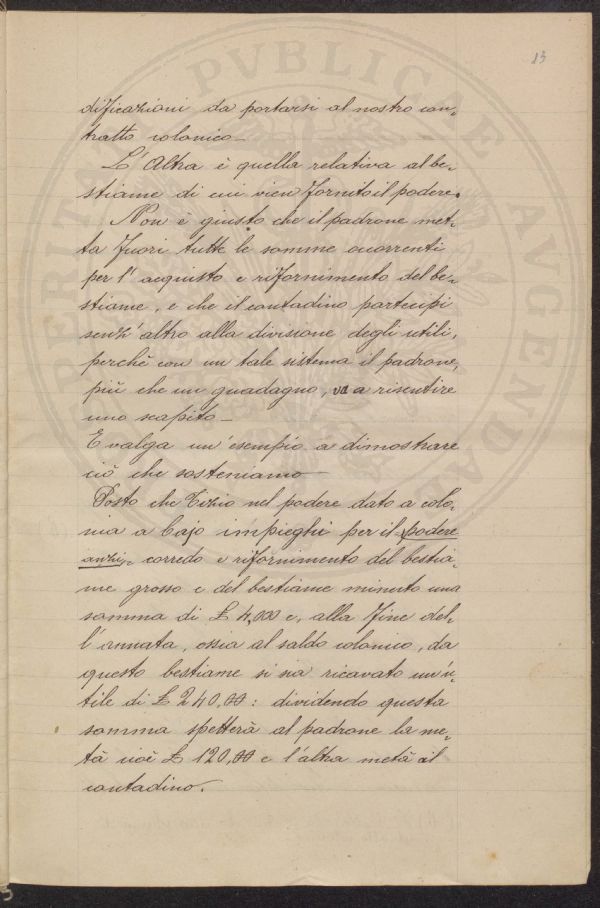 13
dificazioni da portarsi al nostro con-
tratto colonico_
L'Altra è quella relativa al be-
stiame di cui vien fornito il podere.
Non è giusto che il padrone met-
ta fuori tutte le somme occorrenti
per l'acquisto e rifornimento del be-
stiame, e che il contadino partecipi
senz'altro alla divisione degli utili,
perchè con un tale sistema il padrone,
più che un guadagno, va a risentire
uno scapito_
E valga un'esempio a dimostrare
ciò che sosteniamo_
Posto che Tizio nel podere dato a colo-
nia a Cajo impieghi per il podere
anzi- corredo e rifornimento del bestia-
me grosso e del bestiame minuto una
somma di £ 4,000 e, alla fine del-
l'annata, ossia al saldo colonico, da
questo bestiame si sia ricavato un'u-
tile di £ 240,00: dividendo questa
somma spetterà al padrone la me-
tà cioè £ 120,00 e l'altra metà al
contadino.
PVBLICAE
AVGENDAE
PERITI